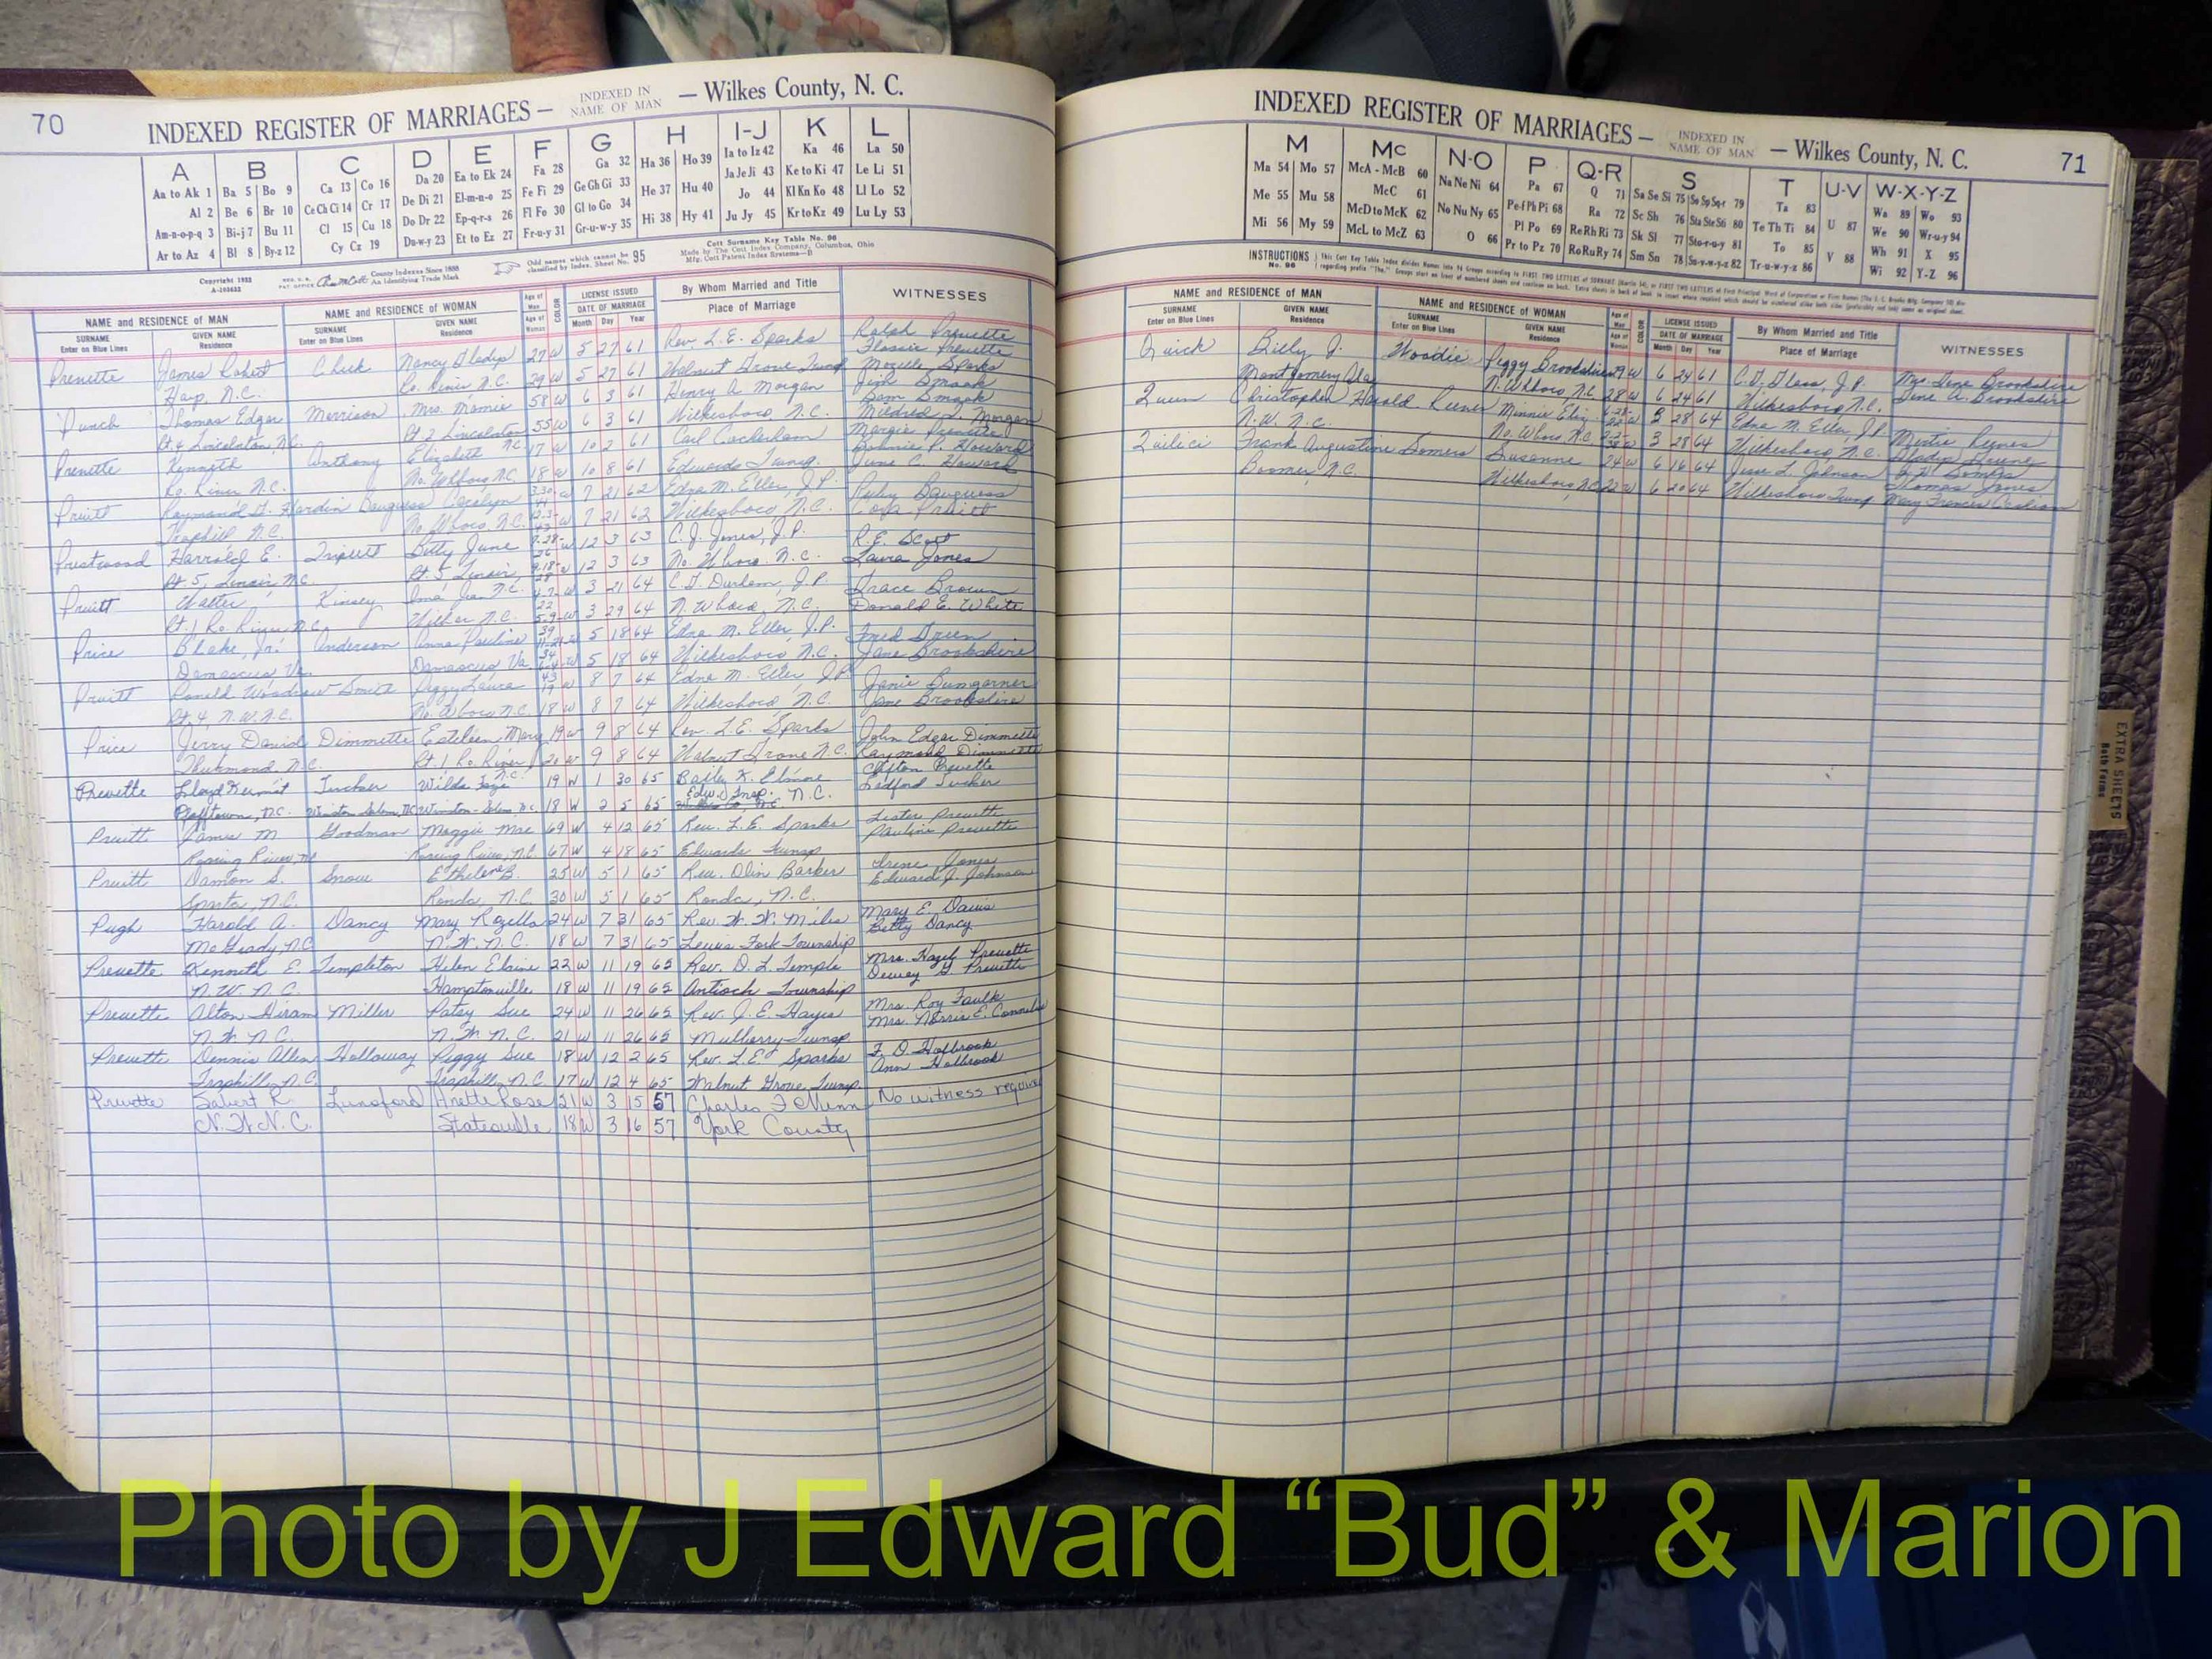 70
INDEXED REGISTER OF MARRIAGES — INDEXED IN NAME OF MAN — Wilkes County, N. C.
A B C D E F G H I-J K L
Aa to Ak 1 Ba 5 Bo 9 Ca 13 Co 16 Da 20 Ea to Ek 24 Fa 28 Ga 32 Ha 36 Ho 39 Ia to Iz 42 Ka 46 La 50
Al 2 Be 6 Br 10 Ce Ch Ci 14 Cr 17 De Di 21 El-m-n-o 25 Fe Fi 29 Ge Gh Gi 33 He 37 Hu 40 Ja Je Ji 43 Ke to Ki 47 Le Li 51
Am-n-o-p-q 3 Bi-j 7 Bu 11 Cl 15 Cu 18 Do Dr 22 Ep-q-r-s 26 Fl Fo 30 Gl to Go 34 Hi 38 Hy 41 Jo 44 Kl Kn Ko 48 Ll Lo 52
Ar to Az 4 Bl 8 By-z 12 Cy Cz 19 Du-w-y 23 Et to Ez 27 Fr-u-y 31 Gr-u-w-y 35 Ju Jy 45 Kr to Kz 49 Lu Ly 53
County Indexes Since 1888
An Identifying Trade Mark
Odd names which cannot be classified by Index. Sheet No. 95
Cott Surname Key Table No. 96
Made by The Cott Index Company, Columbus, Ohio
NAME and RESIDENCE OF MAN NAME and RESIDENCE OF WOMAN Age of Man COLOR LICENSE ISSUED By Whom Married and Title WITNESSES
SURNAME Enter on Blue Lines GIVEN NAME Residence SURNAME Enter on Blue Lines GIVEN NAME Residence Age of Woman DATE OF MARRIAGE Month Day Year Place of Marriage
Prevette James Robert Cheek Nancy Gladys 27 W 5 27 61 Rev. L. E. Sparks Ralph Prevette
Hays N.C. 29 W 5 27 61 Walnut Grove Twnsp
Punch Thomas Edgar Morrison Mrs. Mamie 58 W 6 3 61 Henry A. Morgan
Rt. 4 Lincolnton, N.C. Rt 2 Lincolnton N.C. 55 W 6 3 61 Wilkesboro N.C. Mildred L. Morgan
Prevette Kenneth Anthony Elizabeth 17 W 10 2 61 Carl Cockerham Margie Prevette
Ro. River N.C. No. Wilkboro N.C. 18 W 10 8 61 Edwards Twnsp. June C. Howard
Pruitt Raymond G. Hardin Bauguess 7 21 62 Edna M. Eller, J.P. Ruby Bauguess
Traphill N.C. No. Wboro, N.C. 7 21 62 Wilkesboro N.C.
Prestwood Harrold E. Triplett Betty June 12 3 63 C. J. Jones, J.P. R. E. Scott
Rt. 5, Lenoir, N.C. Rt. 5 Lenoir, N.C. 12 3 63 No. Wboro. N.C. Laura Jones
Pruitt Walter Kinsey Ima Jean 3 21 64 C. G. Durham, J.P. Grace Brown
Rt. 1 Ro. River, N.C. Wilkes N.C. 3 29 64 N. Wboro, N.C. Donald E. White
Price Blake, Jr. Anderson Anna Pauline 5 18 64 Edna M. Eller, J.P. Fred Green
Damascus Va. Damascus Va 5 18 64 Wilkesboro N.C. Jane Brookshire
Pruitt Ronald Woodrow Smith Peggy Laura 19 W 8 7 64 Edna M. Eller, J.P. Janie Bumgarner
Rt. 4 N.W. N.C. No. Wboro N.C. 18 W 8 7 64 Wilkesboro N.C. Jane Brookshire
Price Jerry David Dimmette Estileen Mary 19 W 9 8 64 Rev. L. E. Sparks John Edgar Dimmette
Thurmond, N.C. Rt. 1 Ro. River, N.C. 20 W 9 8 64 Walnut Grove N.C. Raymond Dimmette
Prevette Lloyd Kermit Tucker Wilda Faye 19 W 1 30 65 Clifton Prevette
Pfafftown, N.C. Winston-Salem, N.C. 18 W 2 5 65 Edw. Twsp. N.C. Ledford Tucker
Pruitt James M Goodman Maggie Mae 69 W 4 12 65 Rev. L. E. Sparks Lester Prevette
Roaring River, N.C. Roaring River, N.C. 67 W 4 18 65 Edwards Twnsp Pauline Prevette
Pruitt Damon S. Snow Ethelene B. 25 W 5 1 65 Rev. Olin Barker Irene Jones
Sparta, N.C. Ronda, N.C. 30 W 5 1 65 Ronda, N.C. Edward J. Johnson
Pugh Harold A. Dancy Mary Rozella 24 W 7 31 65 Rev. W. W. Miles Mary E. Davis
McGrady, N.C. N. W. N. C. 18 W 7 31 65 Lewis Fork Township Betty Dancy
Prevette Kenneth E. Templeton Helen Elaine 22 W 11 19 65 Rev. D. L. Temple Mrs. Hazel Prevette
N. W. N. C. Hamptonville 18 W 11 19 65 Antioch Township Dewey G Prevette
Prevette Alton Hiram Miller Patsy Sue 24 W 11 26 65 Rev. J. E. Hayes Mrs. Roy Faulk
N. W. N. C. N. W. N. C. 21 W 11 26 65 Mulberry Twnsp Mrs. Norris E.
Prevette Dennis Allen Holloway Peggy Sue 18 W 12 2 65 Rev. L. E. Sparks F. D. Holbrook
Traphill, N.C. Traphill, N.C. 17 W 12 4 65 Walnut Grove Twnsp. Ann Holbrook
Prevette R. Lunsford Anette Rose 21 W 3 15 57 Charles F Nunn No witness required
N. W N. C. Statesville 18 W 3 16 57 York County
INDEXED REGISTER OF MARRIAGES — INDEXED IN NAME OF MAN — Wilkes County, N. C. 71
M Mc N-O P Q-R S T U-V W-X-Y-Z
Ma 54 Mo 57 McA - McB 60 Na Ne Ni 64 Pa 67 Q 71 Sa Se Si 75 So Sp Sq-r 79 Ta 83 U 87 Wa 89 Wo 93
Me 55 Mu 58 McC 61 No Nu Ny 65 Pe-f Ph Pi 68 Ra 72 Sc Sh 76 Sta Ste Sti 80 Te Th Ti 84 V 88 We 90 Wr-u-y 94
Mi 56 My 59 McD to McK 62 O 66 Pl Po 69 Re Rh Ri 73 Sk Sl 77 Sto-r-u-y 81 To 85 Wh 91 X 95
McL to McZ 63 Pr to Pz 70 Ro Ru Ry 74 Sm Sn 78 Su-v-w-y-z 82 Tr-u-w-y-z 86 Wi 92 Y-Z 96
INSTRUCTIONS
NAME and RESIDENCE OF MAN NAME and RESIDENCE OF WOMAN Age of Man COLOR LICENSE ISSUED By Whom Married and Title WITNESSES
SURNAME Enter on Blue Lines GIVEN NAME Residence SURNAME Enter on Blue Lines GIVEN NAME Residence DATE OF MARRIAGE Month Day Year Place of Marriage
Quick Billy J. Woodie Peggy Brookshire 29 W 6 24 61 C. G. Glass, J.P. Mrs. Irene Brookshire
Montgomery Ala. N. Wilkboro N.C. 28 W 6 24 61 Wilkesboro, N.C.
Queen Christopher Harold Reeves Minnie Eliz. 3 28 64 Edna M. Eller, J.P. Mertie Reeves
N.W. N.C. No. Wboro N.C. 3 28 64 Wilkesboro, N.C.
Quilici Frank Augustine Somers Susanne 24 W 6 16 64 Jesse L. Johnson Thomas Jones
Boomer, N.C. Wilkesboro, N.C. 22 W 6 20 64 Wilkesboro Twnsp
EXTRA SHEETS
Both Forms
Photo by J Edward “Bud” & Marion